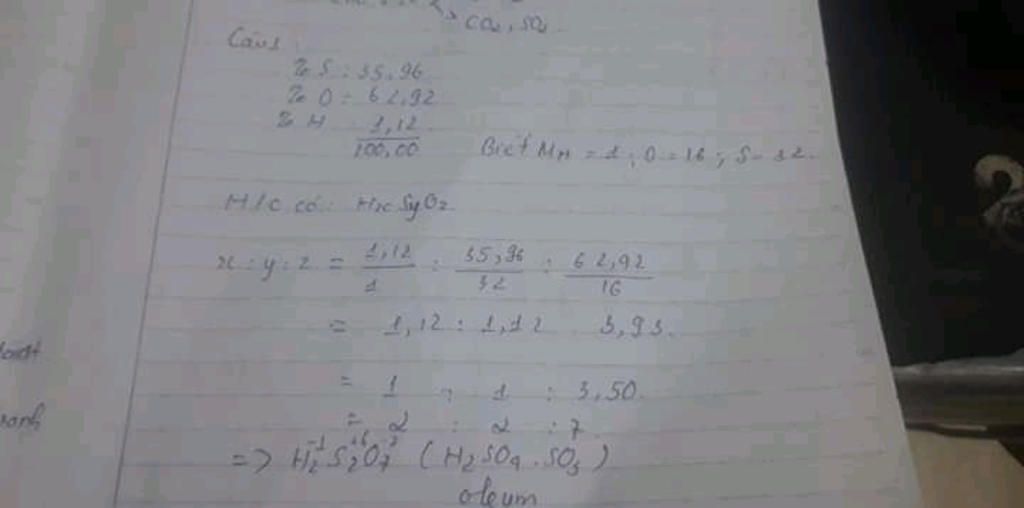 CO2, SO2
Câu 1:
% S : 35,96
% O : 62,92
% H 1,12
100,00 Biết MH = 1 ; O = 16 ; S = 32.
H/c có: HxSyOz
x : y : z = 1,12/1 : 35,96/32 : 62,92/16
= 1,12 : 1,12 3,93.
= 1 : 1 : 3,50.
= 2 : 2 : 7
=> H2S2O7 (H2SO4.SO3)
oleum